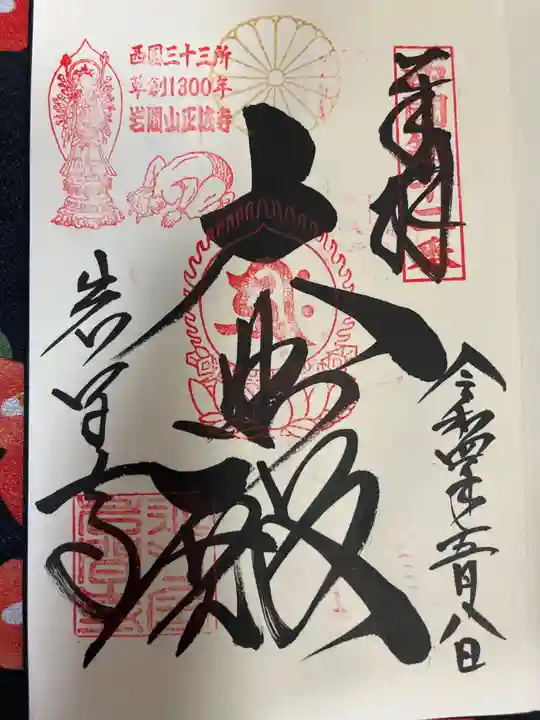 奉拝
令和四年五月八日
大悲殿
岩間寺
西國三十三所
草創1300年
岩間山正法寺